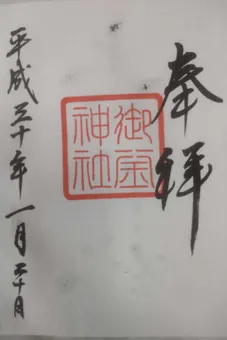 奉拝
御霊神社
平成三十年一月二十日